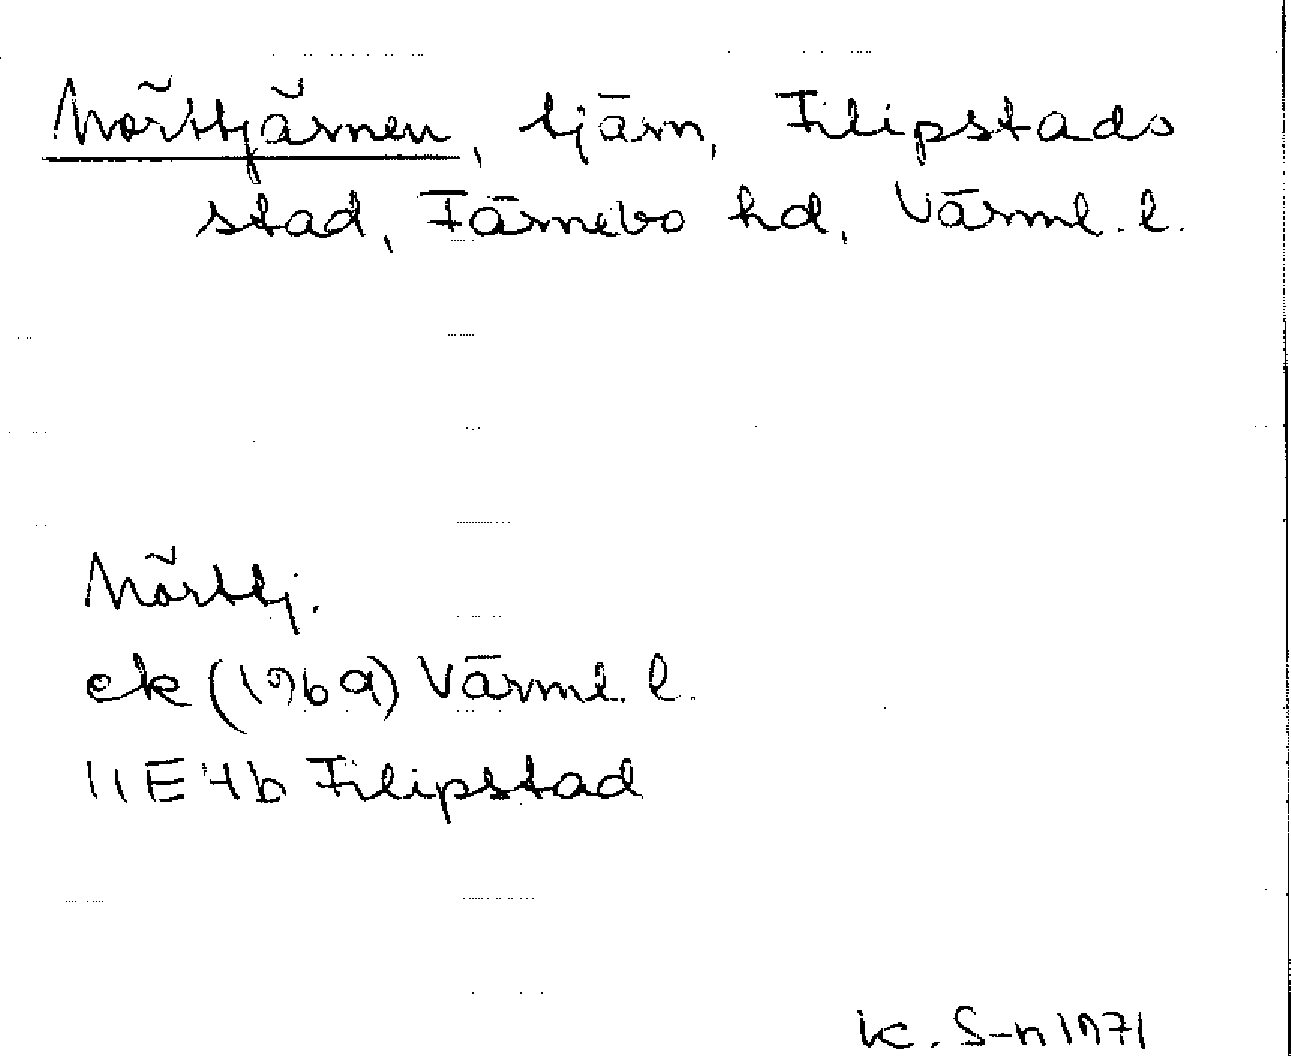 Mörttjärnen, tjärn, Filipstads
stad, Färnebo hd, Värml. l.
Mörttj.
ek (1969) Värml. l.
11E4b Filipstad
K. S-n 1971